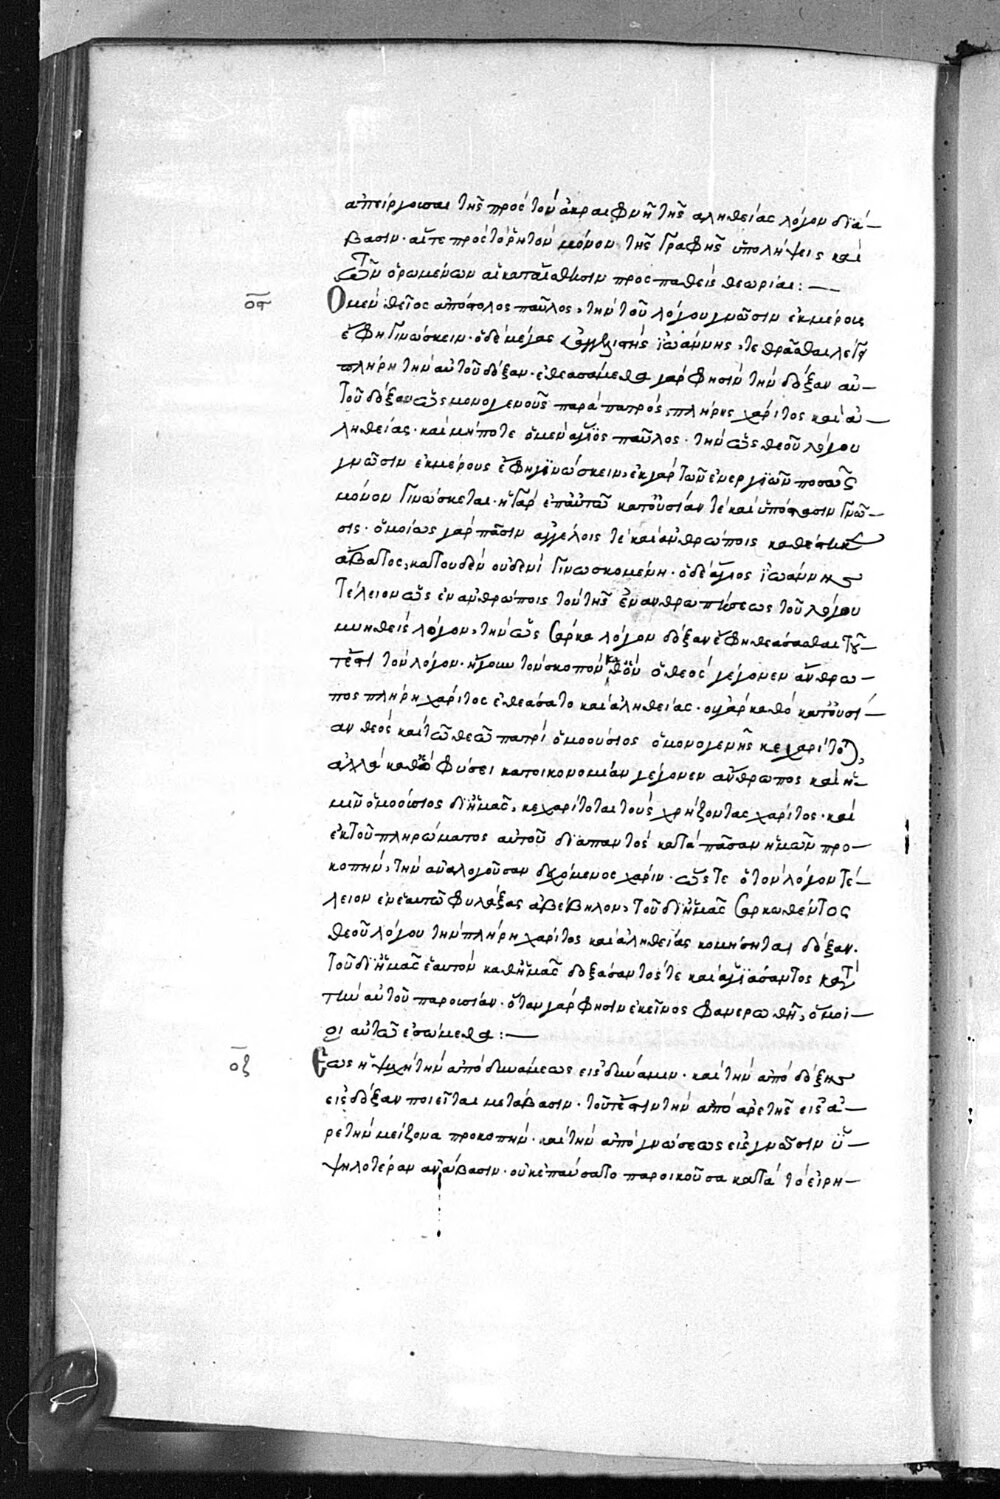 ἀπείργουσαι τῆς πρὸς τὸν ἀκραιφνῆ τῆς ἀληθείας λόγον διά-
βασιν· αἵ τε πρὸς τὸ ῥητὸν μόνον τῆς γραφῆς ὑπολήψεις καὶ
τῶν ὁρωμένων αἱ κατ' αἴσθησιν προσπαθεῖς θεωρίαι:—
ος Ὁ μὲν θεῖος ἀπόστολος παῦλος, τὴν τοῦ λόγου γνῶσιν ἐκ μέρους
ἔφη γινώσκειν· ὁ δὲ μέγας εὐαγγελιστὴς ἰωάννης, τεθεᾶσθαι λέγει
πλήρη τὴν αὐτοῦ δόξαν· ἐθεασάμεθα γάρ φησιν τὴν δόξαν αὐ-
τοῦ δόξαν ὡς μονογενοῦς παρὰ πατρός, πλήρης χάριτος καὶ ἀ-
ληθείας· καὶ μήποτε ὁ μὲν ἅγιος παῦλος· τὴν ὡς θεοῦ λόγου
γνῶσιν ἐκ μέρους ἔφη γινώσκειν, ἐκ γὰρ τῶν ἐνεργιῶν ποσῶς
μόνον γινώσκεται· ἡ γὰρ ἐπ' αὐτῶ κατ' οὐσίαν τὲ καὶ ὑπόστασιν γνῶ-
σις· ὁμοίως γὰρ πᾶσιν ἀγγέλοις τὲ καὶ ἀνθρώποις καθέστηκεν
ἄβατος, κατ' οὐδὲν οὐδενὶ γινωσκομένη· ὁ δὲ ἅγιος ἰωάννης
τέλειον ὡς ἐν ἀνθρώποις τὸν τῆς ἐνανθρωπήσεως τοῦ λόγου
μυηθεὶς λόγον, τὴν ὡς σάρκα λόγου δόξαν ἔφη θεάσασθαι τοῦ-
τέστι τὸν λόγον· ἤγουν τὸν σκοπὸν καθ' ὃν ὁ θεὸς γέγονεν ἄνθρω-
πος πλήρη χάριτος ἐθεάσατο καὶ ἀληθείας· οὐ γὰρ καθὸ κατ' οὐσί-
αν θεὸς καὶ τῶ θεῶ πατρὶ ὁμοούσιος ὁ μονογενὴς κεχαρίτωται,
ἀλλὰ καθὸ φύσει κατ' οἰκονομίαν γέγονεν ἄνθρωπος καὶ ἡ-
μῖν ὁμοούσιος δι' ἡμᾶς, κεχαρίτοται τοὺς χρήζοντας χάριτος· καὶ
ἐκ τοῦ πληρώματος αὐτοῦ διαπαντὸς κατὰ πᾶσαν ἡμῶν προ-
κοπήν, τὴν ἀναλογοῦσαν δεχόμενος χάριν· ὥστε ὁ τὸν λόγον τέ-
λειον ἐν ἑαυτῶ φυλάξας ἀβέβηλον, τοῦ δι' ἡμᾶς σαρκωθέντος
θεοῦ λόγου τὴν πλήρη χάριτος καὶ ἀληθείας κομήσηται δόξαν·
τοῦ δι' ἡμᾶς ἑαυτὸν καθ' ἡμᾶς δοξάσαντός τε καὶ ἁγιάσαντος κατὰ
τὴν αὐτοῦ παρουσίαν· ὅταν γάρ φησιν ἐκεῖνος φανερωθῆ, ὅμοι-
οι αὐτῶ ἐσώμεθα:—
οζ Ἕως ἡ ψυχὴ τὴν ἀπὸ δυνάμεως εἰς δύναμιν· καὶ τὴν ἀπὸ δόξης
εἰς δόξαν ποιεῖται μετάβασιν· τοῦτέστιν τὴν ἀπὸ ἀρετῆς εἰς ἀ-
ρετὴν μείζονα προκοπήν· καὶ τὴν ἀπὸ γνώσεως εἰς γνῶσιν ὑ-
ψηλοτέραν ἀνάβασιν· οὐκ ἐπαύσατο παροικοῦσα κατὰ τὸ εἰρη-